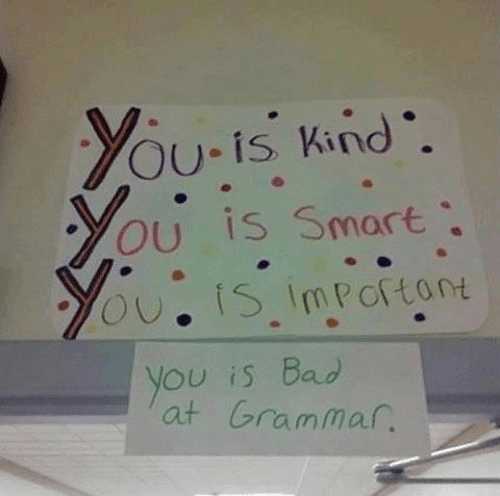 You is Kind
You is Smart
You. is important
you is Bad
at Grammar.